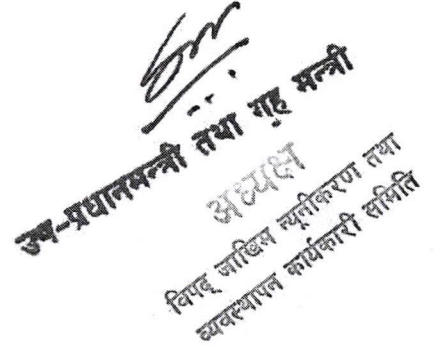 उप-प्रधानमन्त्री तथा गृह मन्त्री
अध्यक्ष
विपद् जोखिम न्यूनीकरण तथा
व्यवस्थापन कार्यकारी समिति